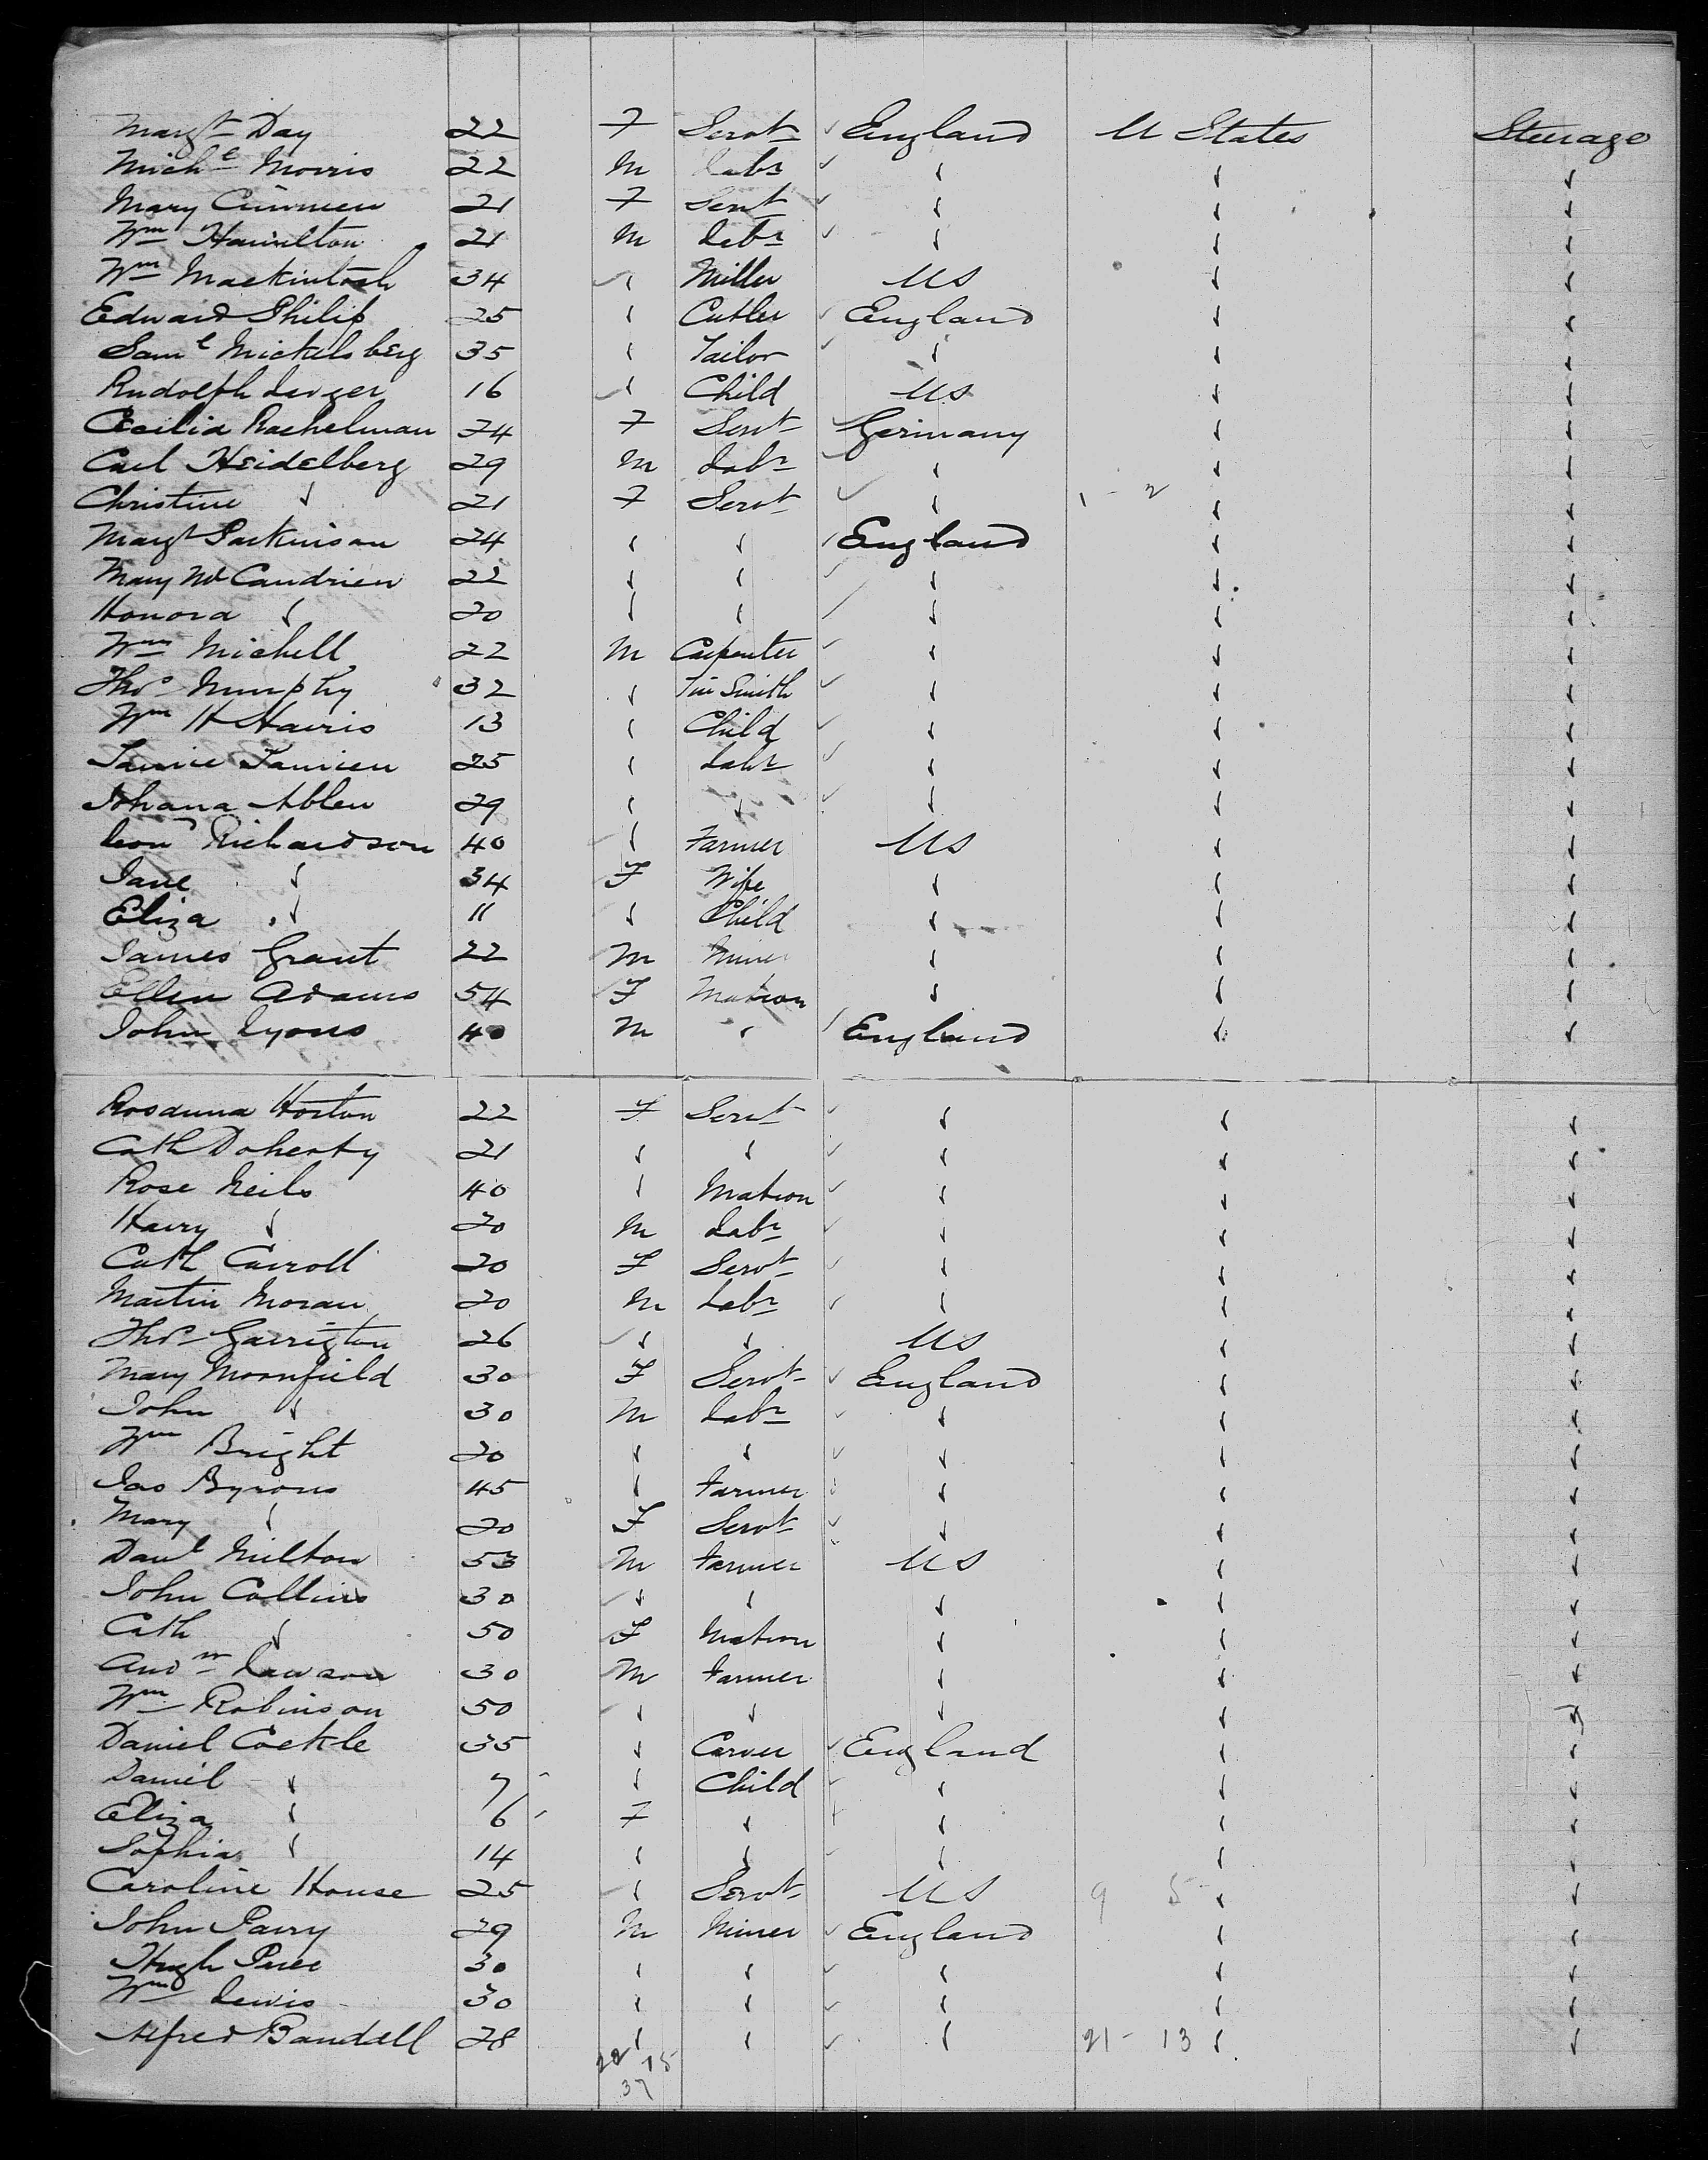 Margt Day 22 F Servt England U States Steerage
Michl Morris 22 M Labr ✓ ✓ ✓
Mary 21 F Servt ✓ ✓ ✓
Wm Hamilton 21 M Labr ✓ ✓ ✓
Wm Mackintosh 34 ✓ Miller US ✓ ✓
Edward Philip 25 ✓ Cutler England ✓ ✓
Saml Mickelsberg 35 ✓ Tailor ✓ ✓ ✓
Rudolph 16 ✓ Child US ✓ ✓
Cecilia Rachelman 24 F Servt Germany ✓ ✓
Carl Heidelberg 29 M Labr ✓ ✓ ✓
Christine ✓ 21 F Servt ✓ 1 - 2 ✓ ✓
Margt Parkinson 24 ✓ ✓ England ✓ ✓
Mary 22 ✓ ✓ ✓ ✓ ✓
Honora ✓ 20 ✓ ✓ ✓ ✓ ✓
Wm Michell 22 M Carpenter ✓ ✓ ✓
Thos Murphy 32 ✓ Tin Smith ✓ ✓ ✓
Wm H Harris 13 ✓ Child ✓ ✓ ✓
25 ✓ Labr ✓ ✓ ✓
Johana Ablen 29 ✓ ✓ ✓ ✓ ✓
Richardson 40 ✓ Farmer US ✓ ✓
Jane ✓ 34 F Wife ✓ ✓ ✓
Eliza ✓ 11 ✓ Child ✓ ✓ ✓
James Grant 22 M Miner ✓ ✓ ✓
Ellen Adams 54 F Matron ✓ ✓ ✓
John Lyons 40 M ✓ England ✓ ✓
Rosanna Horton 22 F Servt ✓ ✓ ✓
Cath Doherty 21 ✓ ✓ ✓ ✓ ✓
Rose Neils 40 ✓ Matron ✓ ✓ ✓
Harry ✓ 20 M Labr ✓ ✓ ✓
Cath Carroll 20 F Servt ✓ ✓ ✓
Martin Moran 20 M Labr ✓ ✓ ✓
Thos Garrigton 26 ✓ ✓ US ✓ ✓
Mary Moornfield 30 F Servt England ✓ ✓
John ✓ 30 M Labr ✓ ✓ ✓
Wm Bright 20 ✓ ✓ ✓ ✓ ✓
Jas Byrons 45 ✓ Farmer ✓ ✓ ✓
Mary ✓ 20 F Servt ✓ ✓ ✓
Danl Milton 53 M Farmer US ✓ ✓
John Collins 30 ✓ ✓ ✓ ✓ ✓
Cath ✓ 50 F Matron ✓ ✓ ✓
Andw Lawson 30 M Farmer ✓ ✓ ✓
Wm Robinson 50 ✓ ✓ ✓ ✓ ✓
Daniel Cockle 35 ✓ Carver England ✓ ✓
Daniel ✓ 7 ✓ Child ✓ ✓ ✓
Eliza ✓ 6 F ✓ ✓ ✓ ✓
Sophia ✓ 14 ✓ ✓ ✓ ✓ ✓
Caroline House 25 ✓ Servt US 9 5 ✓ ✓
John Parry 29 M Miner England ✓ ✓
Hugh Price 30 ✓ ✓ ✓ ✓ ✓
Wm Lewis 30 ✓ ✓ ✓ ✓ ✓
Alfred Bandell 28 ✓ ✓ ✓ 21 - 13 ✓ ✓
22 15
37